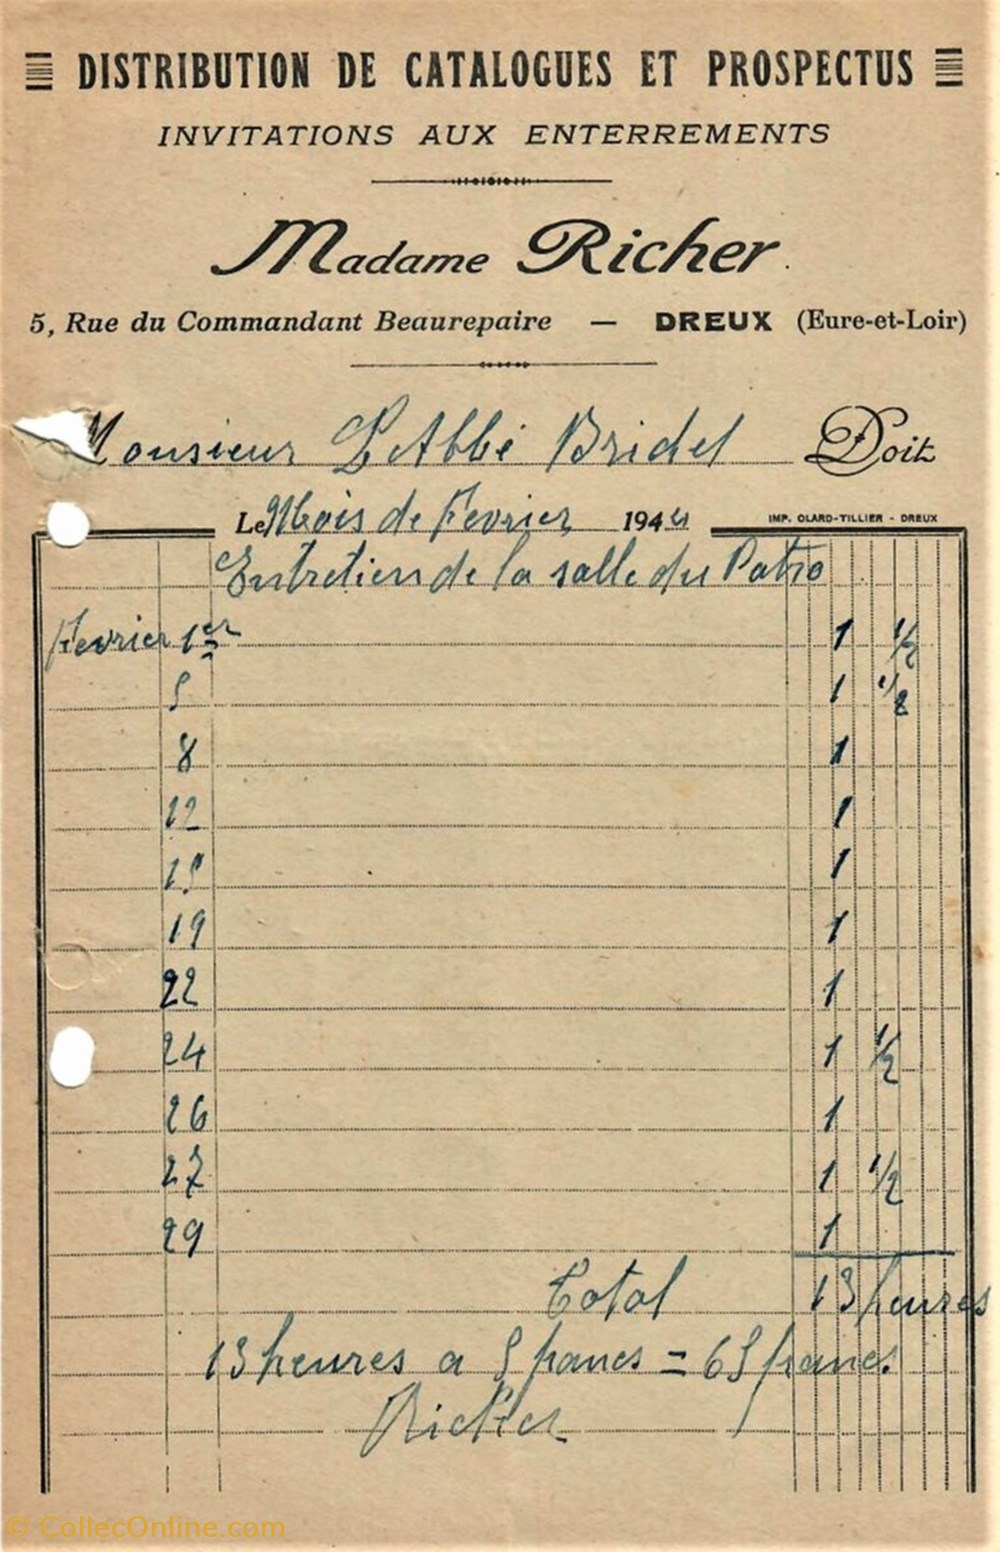 DISTRIBUTION DE CATALOGUES ET PROSPECTUS
INVITATIONS AUX ENTERREMENTS
Madame Richer
5, Rue du Commandant Beaurepaire — DREUX (Eure-et-Loir)
Monsieur L'Abbé Bridel Doit
Le Mois de Fevrier 1944
IMP. OLARD-TILLIER - DREUX
Entretien de la salle du Patro
Fevrier 1er 1 1/2
5 1 1/2
8 1
12 1
15 1
19 1
22 1
24 1 1/2
26 1
27 1 1/2
29 1
Total 13 heures
13 heures a 5 francs = 65 francs
Richer
© CollecOnline.com